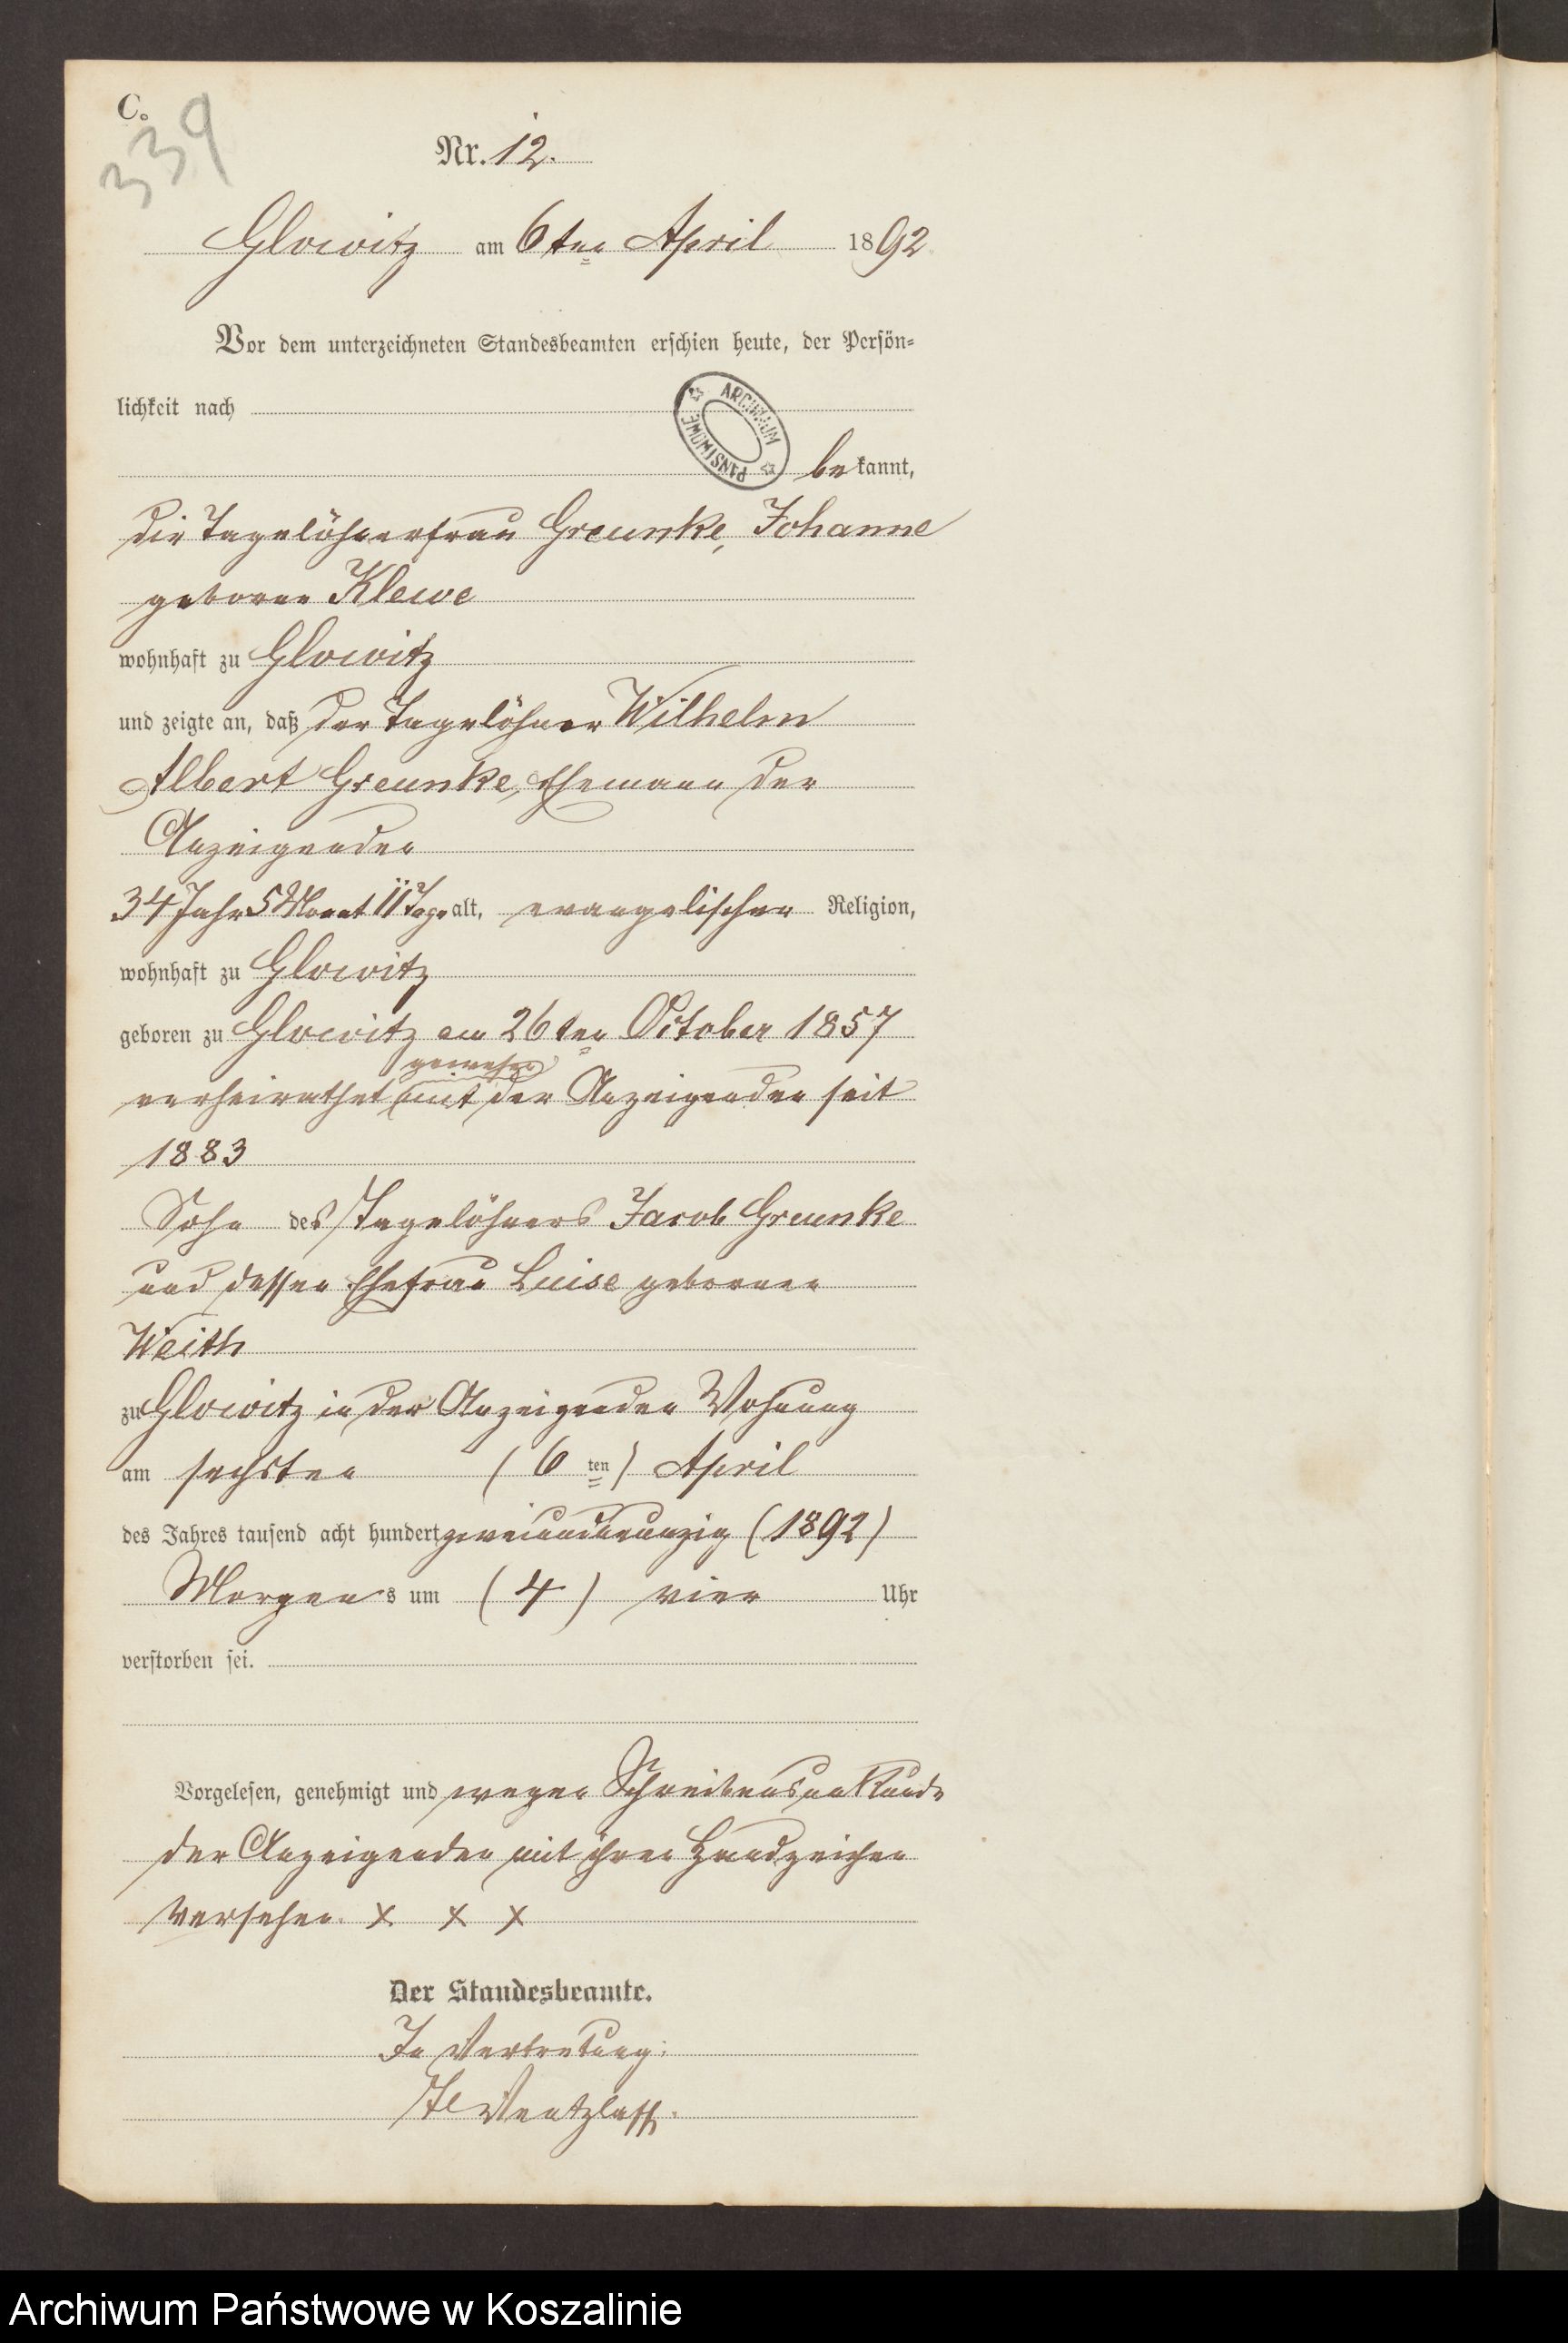 C.
339
Nr. 12.
Glowitz am 6ten April 1892
Vor dem unterzeichneten Standesbeamten erschien heute, der Persön-
lichkeit nach
ARCHIWUM PAŃSTWOWE
bekannt,
die Tagelöhnerfrau Greunke, Johanne
geborne Klewe
wohnhaft zu Glowitz
und zeigte an, daß der Tagelöhner Wilhelm
Albert Greunke, Ehemann der
Anzeigenden
34 Jahr 5 Monat 11 Tage alt, evangelischer Religion,
wohnhaft zu Glowitz
geboren zu Glowitz am 26ten October 1857
gewesen
verheirathet mit der Anzeigenden seit
1883
Sohn des Tagelöhners Jacob Greunke
und dessen Ehefrau Luise gebornen
Weith
zu Glowitz in der Anzeigenden Wohnung
am sechsten (6ten) April
des Jahres tausend acht hundert zweiundneunzig (1892)
Morgens um (4) vier Uhr
verstorben sei.
Vorgelesen, genehmigt und wegen Schreibensunkunde
der Anzeigenden mit ihren Handzeichen
versehen. x x x
Der Standesbeamte.
In Vertretung:
Wentzlaff.
Archiwum Państwowe w Koszalinie